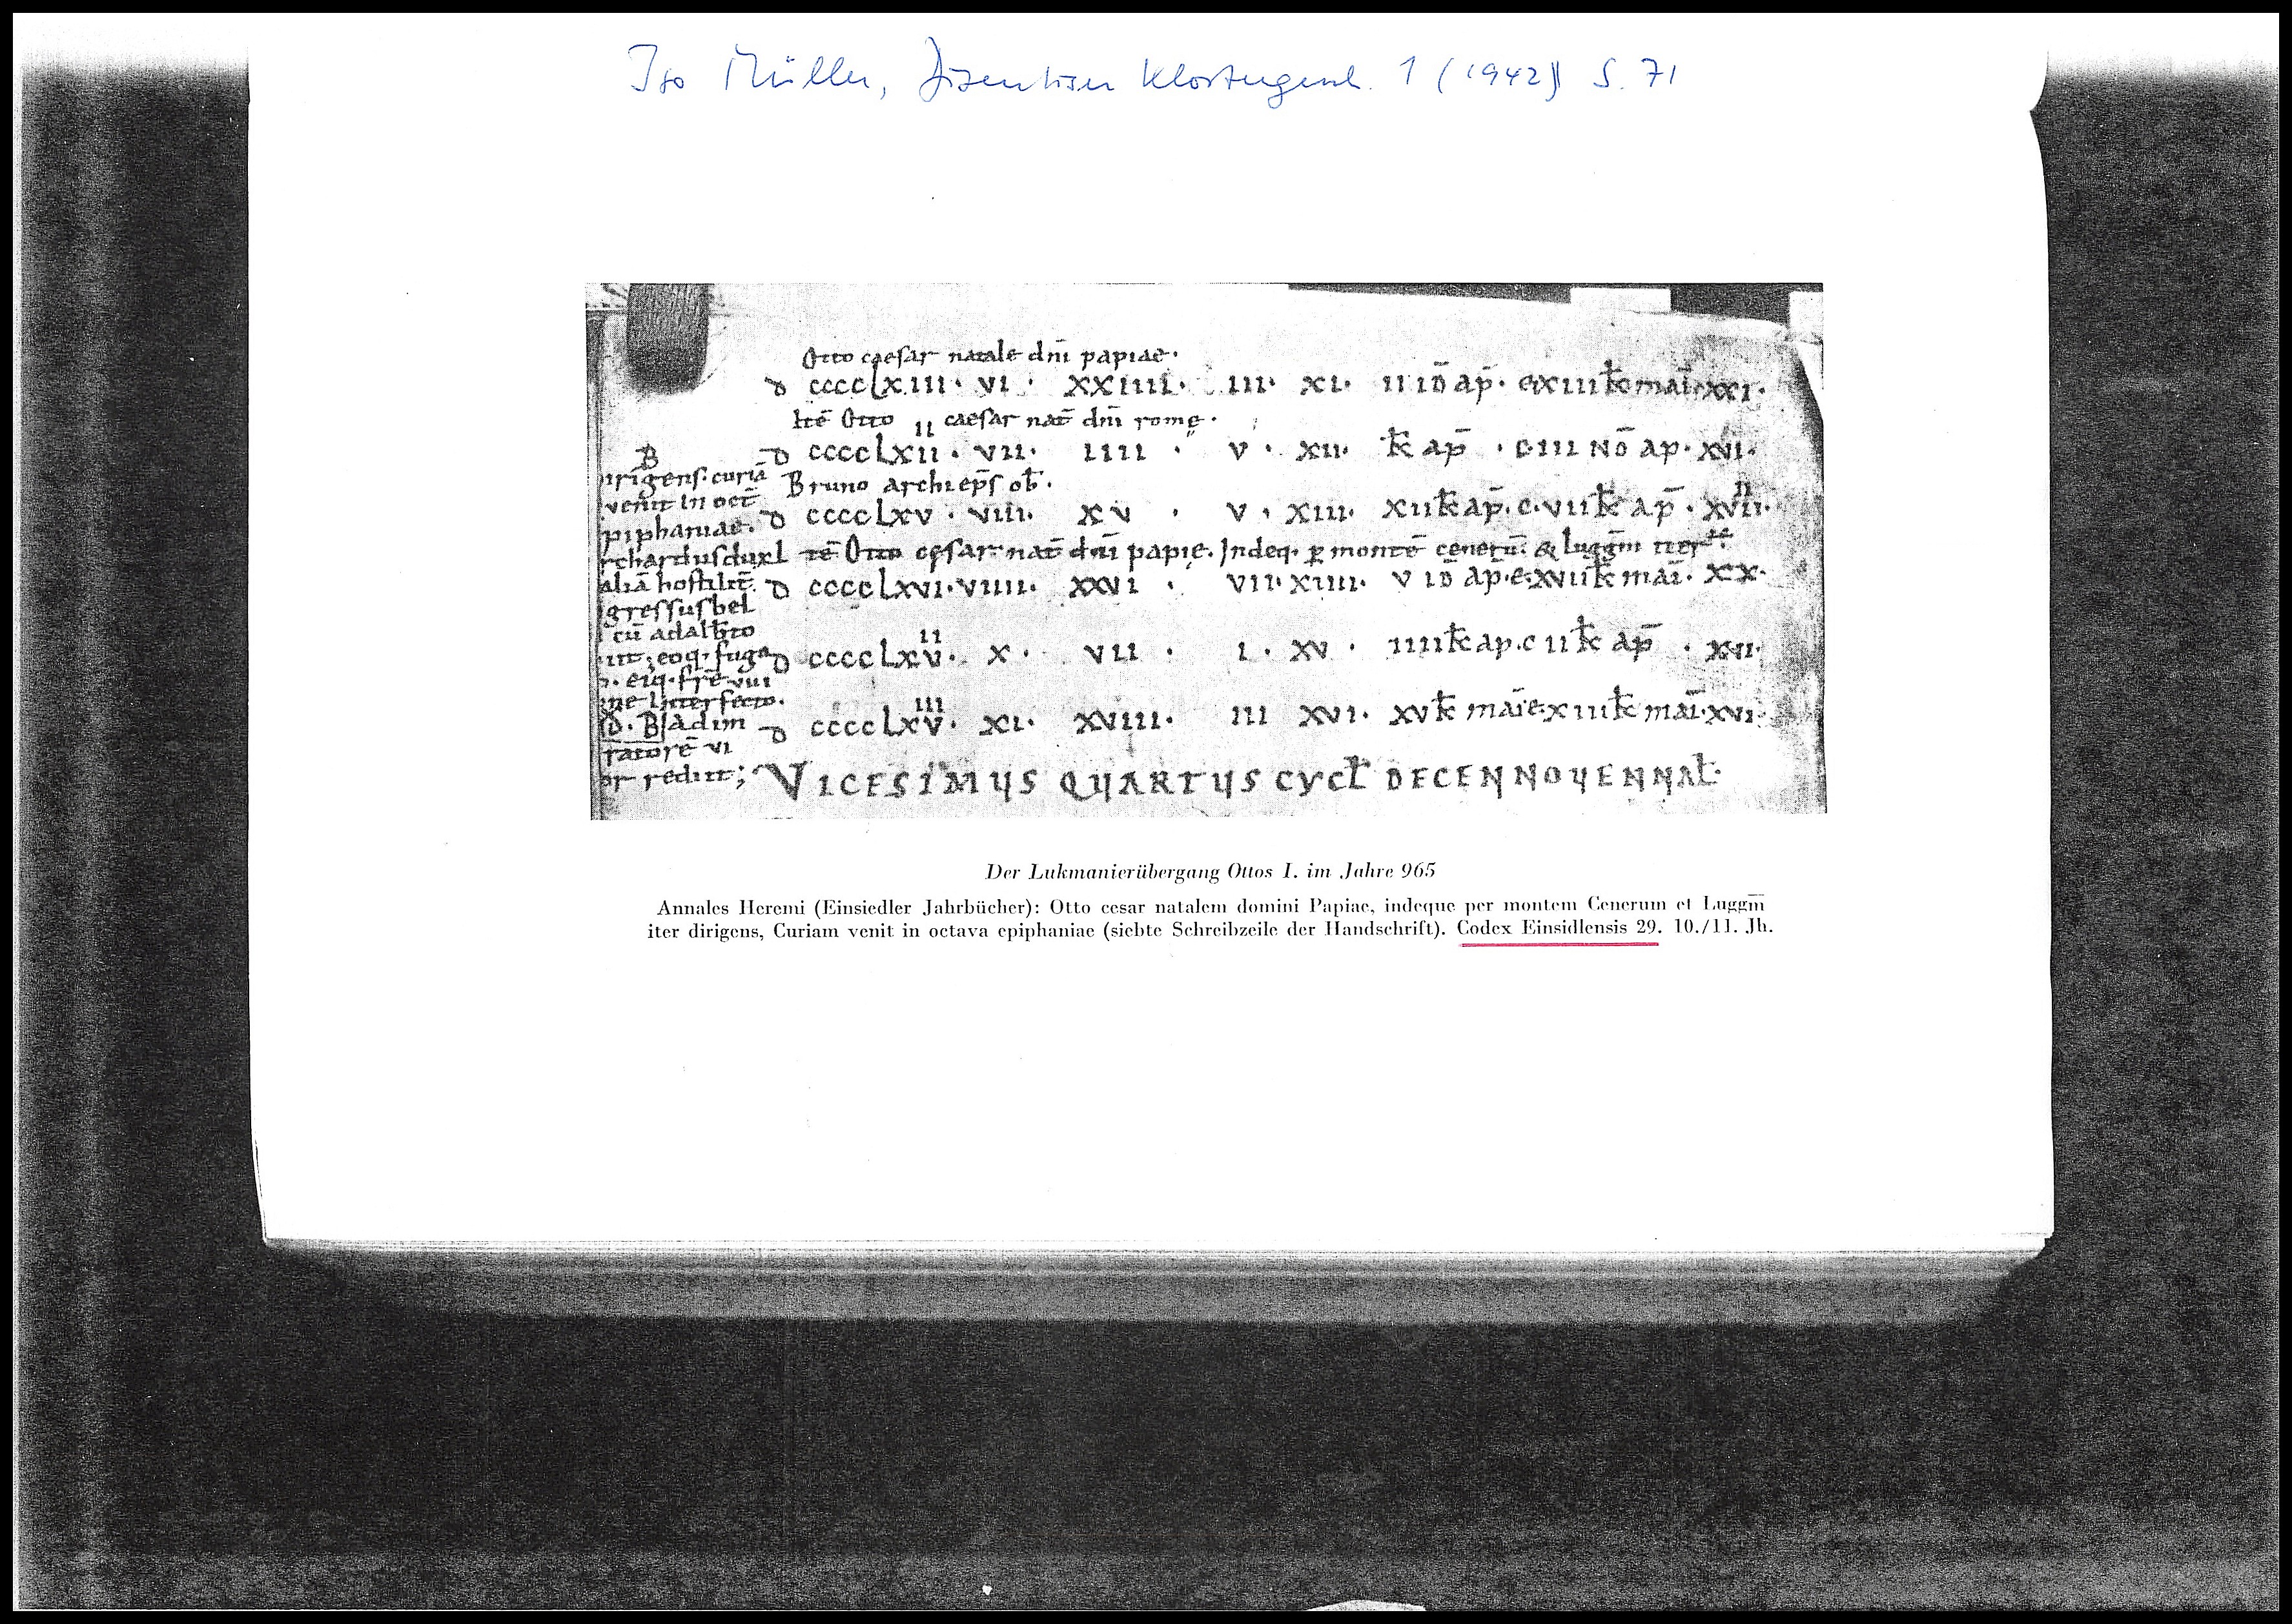 Iso Müller, Disentiser Klostergesch. 1 (1942) S. 71
Otto caesar natale dn̄i papiae·
D cccclxiii· vi · xxiiii· iii· xi· ii id̄ ap̄· xiii k̄ mai xxi·
Itē Otto ii caesar nat̄ dn̄i rome·
B
D cccclxii · vii· iiii · v · xii· k̄ ap̄ · iii No̅ ap· xvi·
irigens·curiā Bruno archiep̄s ob̄·
venit in oct̄
D cccclxv · viii· xv · v · xiii· xii k̄ ap̄·c·vii k̄ ap̄ · xvii·
piphaniae·
rchardus dux tē Otto cęsar nat̄ dn̄i papię· Indeq· p̱ montē cenerū· & luggm̄ iter
aliā hostilit̄
D cccclxvi·viiii· xxvi · vii·xiiii· v id̄ ap̄·e·xvii k̄ mai· xx·
gressus bel
cū adalb̄to
it· eoq· fuga
D cccclxv ii· x· vii · i · xv · iiii k̄ ap·c ii k̄ ap̄ · xvi·
eiq· fr̄e viii
ne interfecto·
D cccclxv iii· xi· xviii· iii xvi· xv k̄ mai e xiii k̄ mai·xvi·
D. B ad im
ratorē vi
or rediit;
VICESIMUS QUARTUS CYCL̄ DECENNOVENNAL̄·
Der Lukmanierübergang Ottos I. im Jahre 965
Annales Heremi (Einsiedler Jahrbücher): Otto cesar natalem domini Papiae, indeque per montem Cenerum et Luggm̄
iter dirigens, Curiam venit in octava epiphaniae (siebte Schreibzeile der Handschrift). Codex Einsidlensis 29. 10./11. Jh.